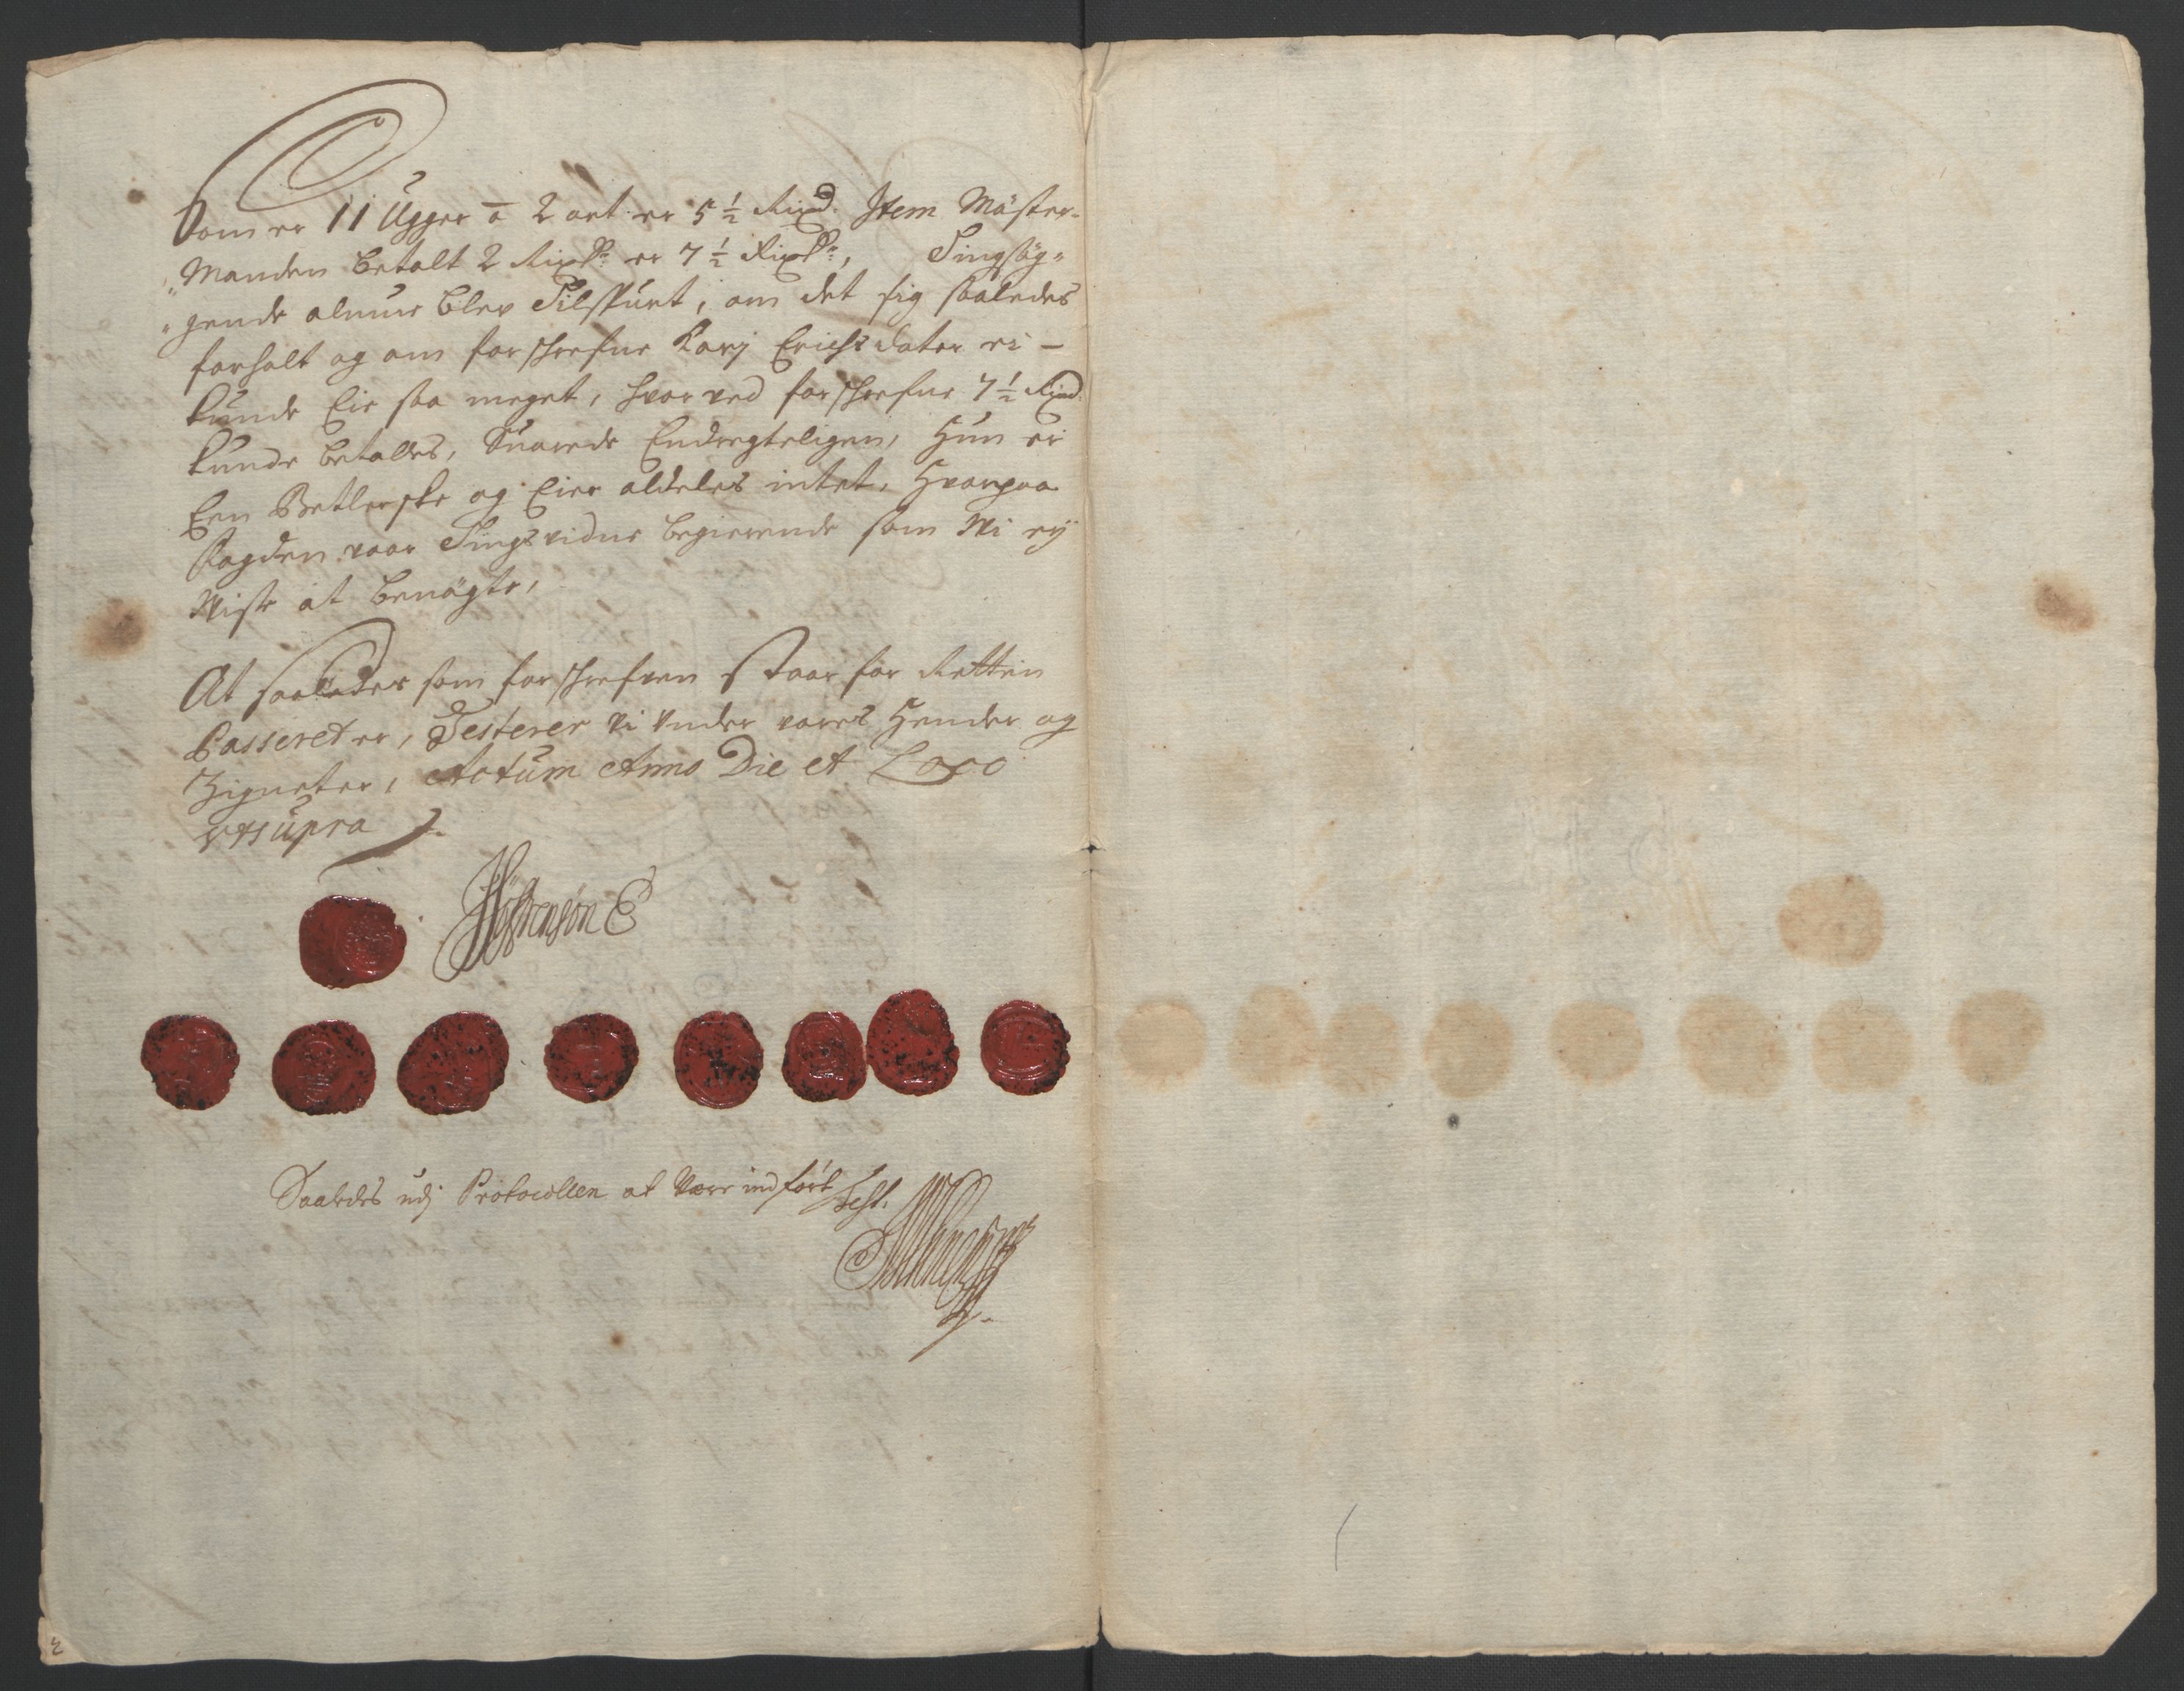 Som er 11 Ugger a 2 ort er 5 ½ Rixd. Item Mäster-
Manden betalt 2 Rixdr. er 7 ½ Rixdr., Tingsög-
gende almue blev Tilspurt, om det sig saaledes
forholt og om forschrefne Karj Erichsdater ei -
kunde Eie saa meget, hvor ved forschrefne 7 ½ Rixd.
kunde betalles, Suarede Endregteligen, Hun er
Een Betlerske og Eier aldeles intet, Hvorpaa
fogden vaar Tingsvidne begierende som Wi ej
Wiste at benägte,
At saaledes som forschrefven staar for Retten
Passeret er, Testerer vi under vores Hender og
Zigneter, Actum Anno Die et Loco
utsupra
Saaledes udj Protocollen at Være indført
Test.
2